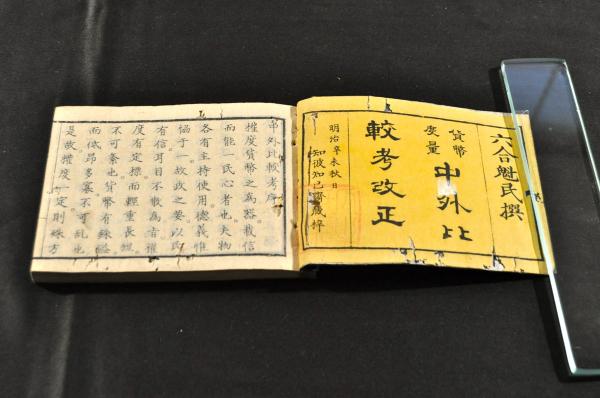 六合魁民撰
貨幣
度量
中外比
較考改正
明治辛未秋日
知彼知己齋蔵梓
中外比較考序
權度貨幣之為器載信
而能一民心者也夫物
各有主持使用德義惟
協于一故政之要以民
有信耳目不載為音權
度有定標而輕重長短
不可紊也貨幣有銖
而低昂多寡不可亂也
是故權度一定則殊方